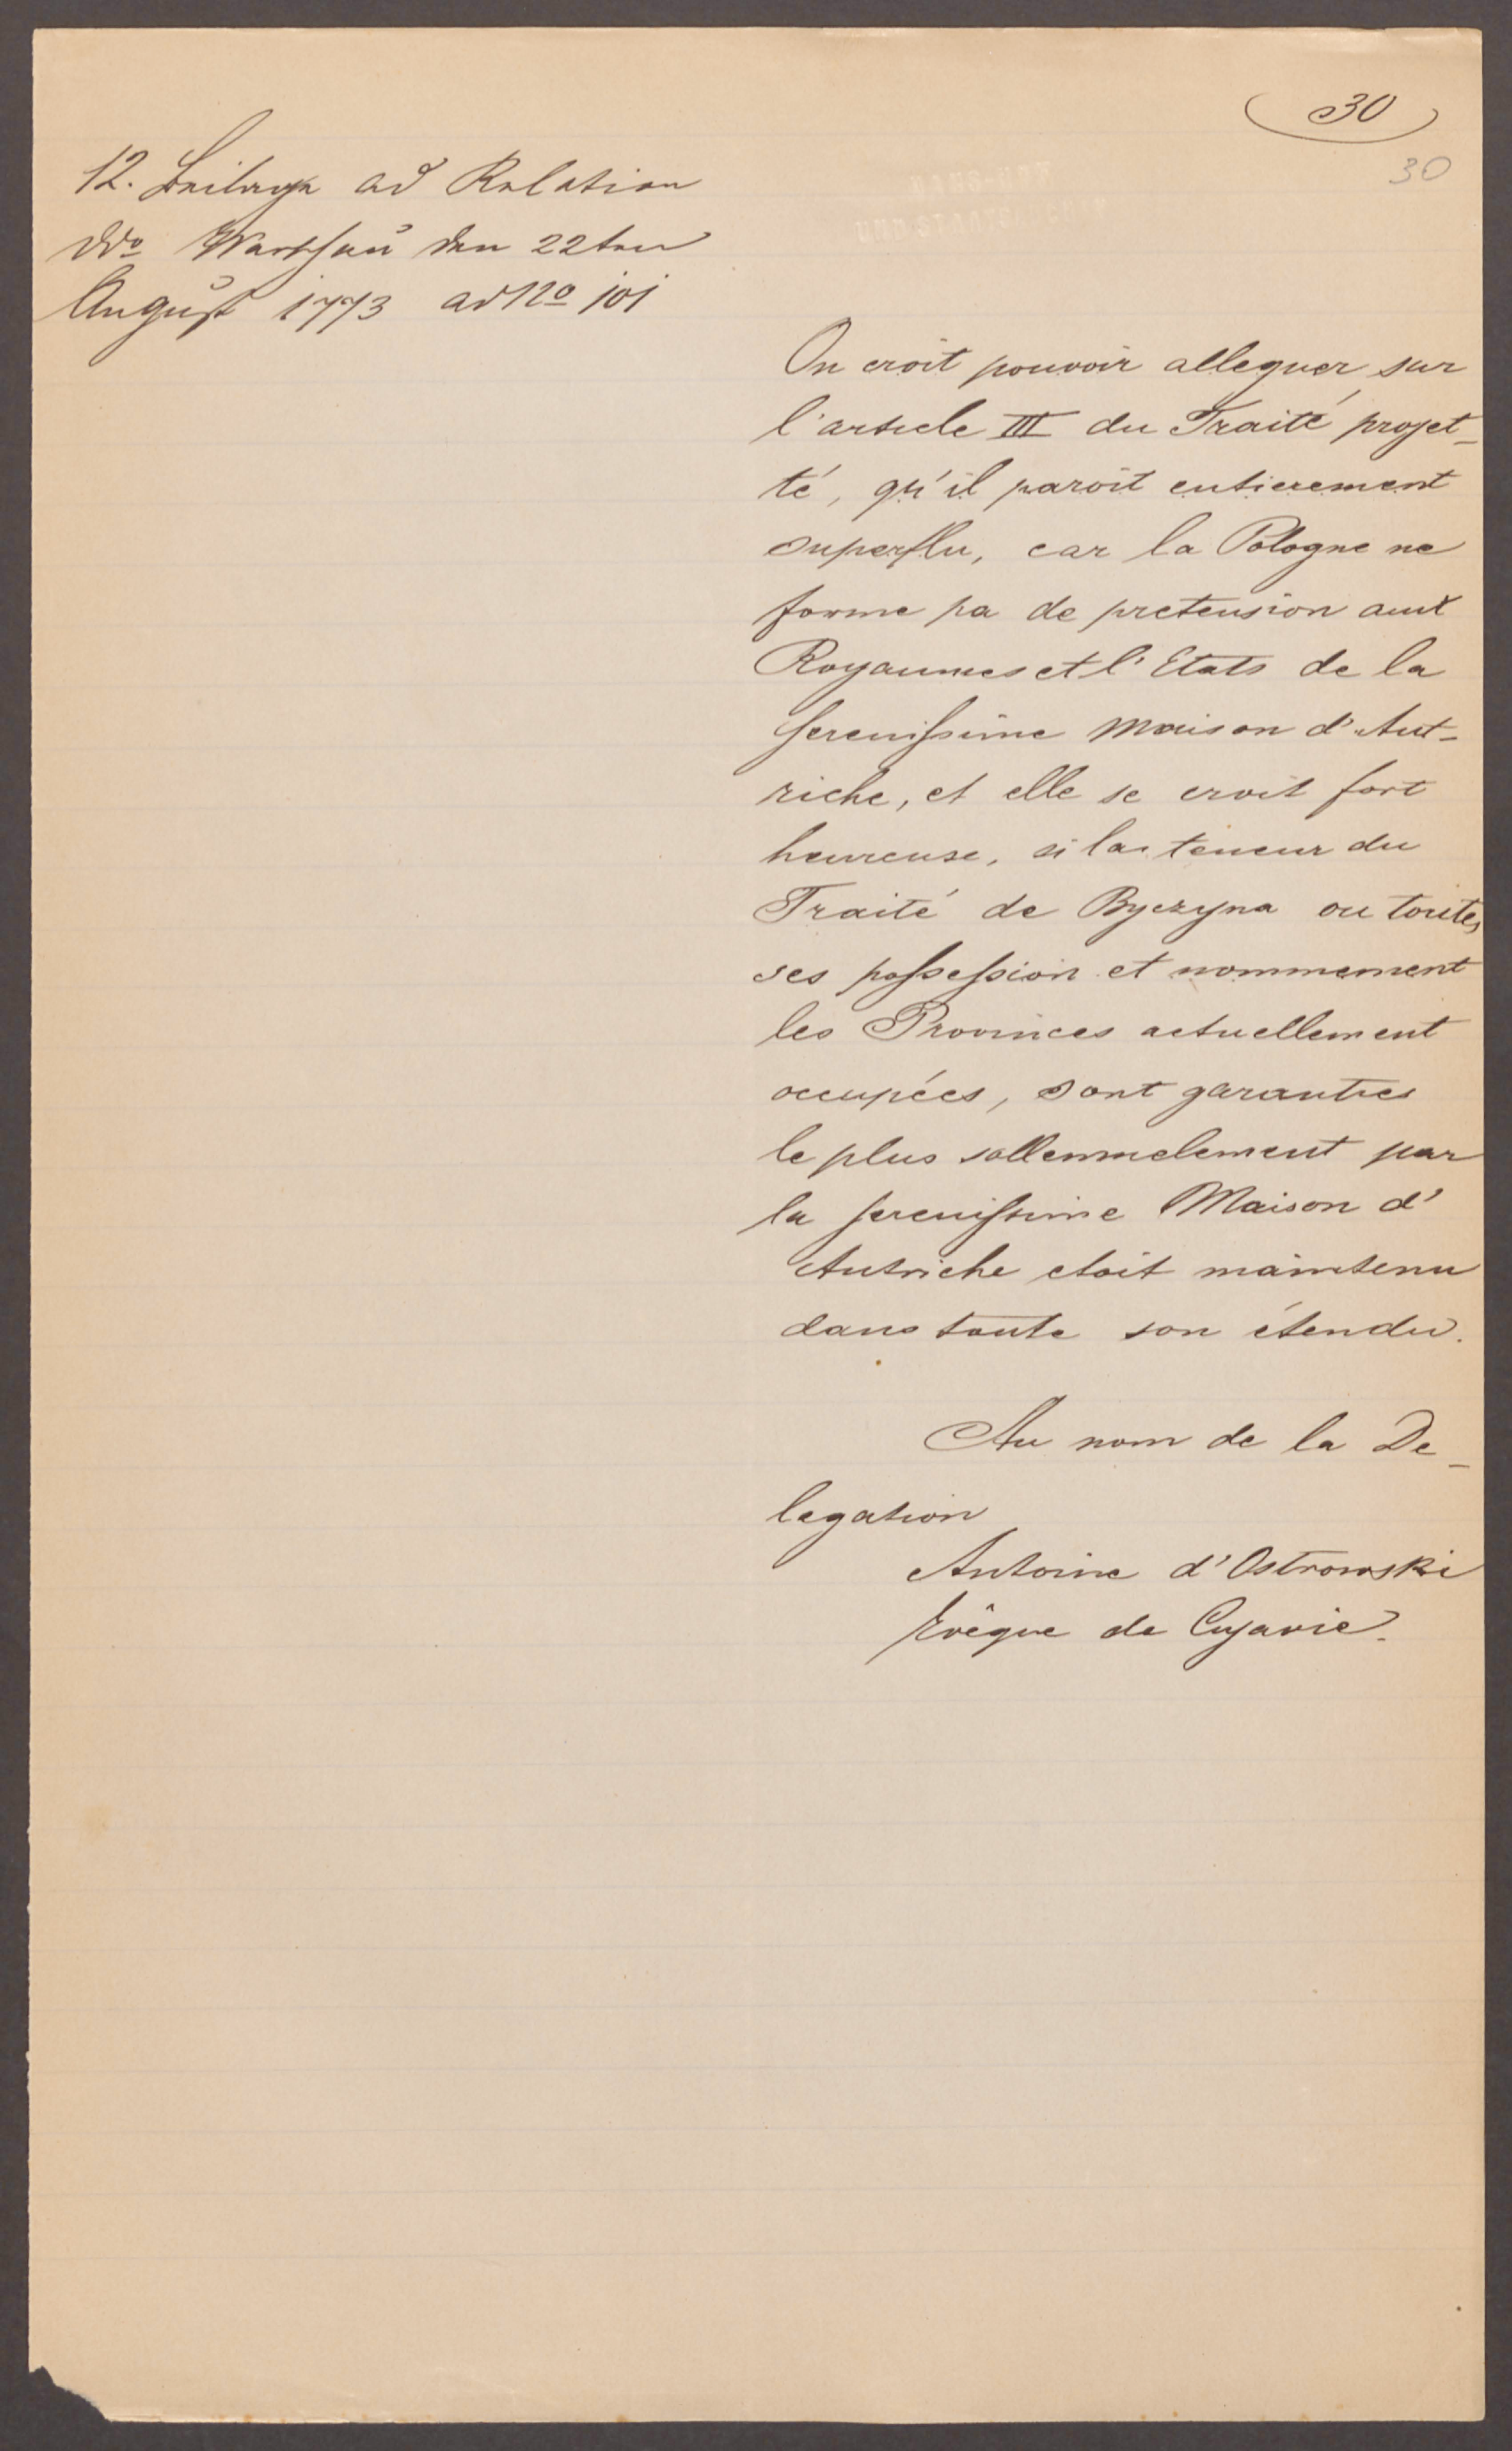 30
30
12. Beilage ad Relation
ddo Warschau den 22ten
August 1773 ad No 101
On croit pouvoir alleguer sur
l'article III du Traité projet-
té, qu'il paroit entierement
superflu, car la Pologne ne
forme pa de pretension aux
Royaumes et l'Etats de la
serenissime Maison d'Aut-
riche, et elle se croit fort
heureuse, si la teneur du
Traité de Byczyna ou toutes
ses possession et nommement
les Provinces actuellement
occupées, sont garanties
le plus sollennelement par
la serenissime Maison d'
Autriche etoit maintenu
dans toute son étendu.
Au nom de la De-
legation
Antoine d'Ostrowski
Evêque de Cujavie.